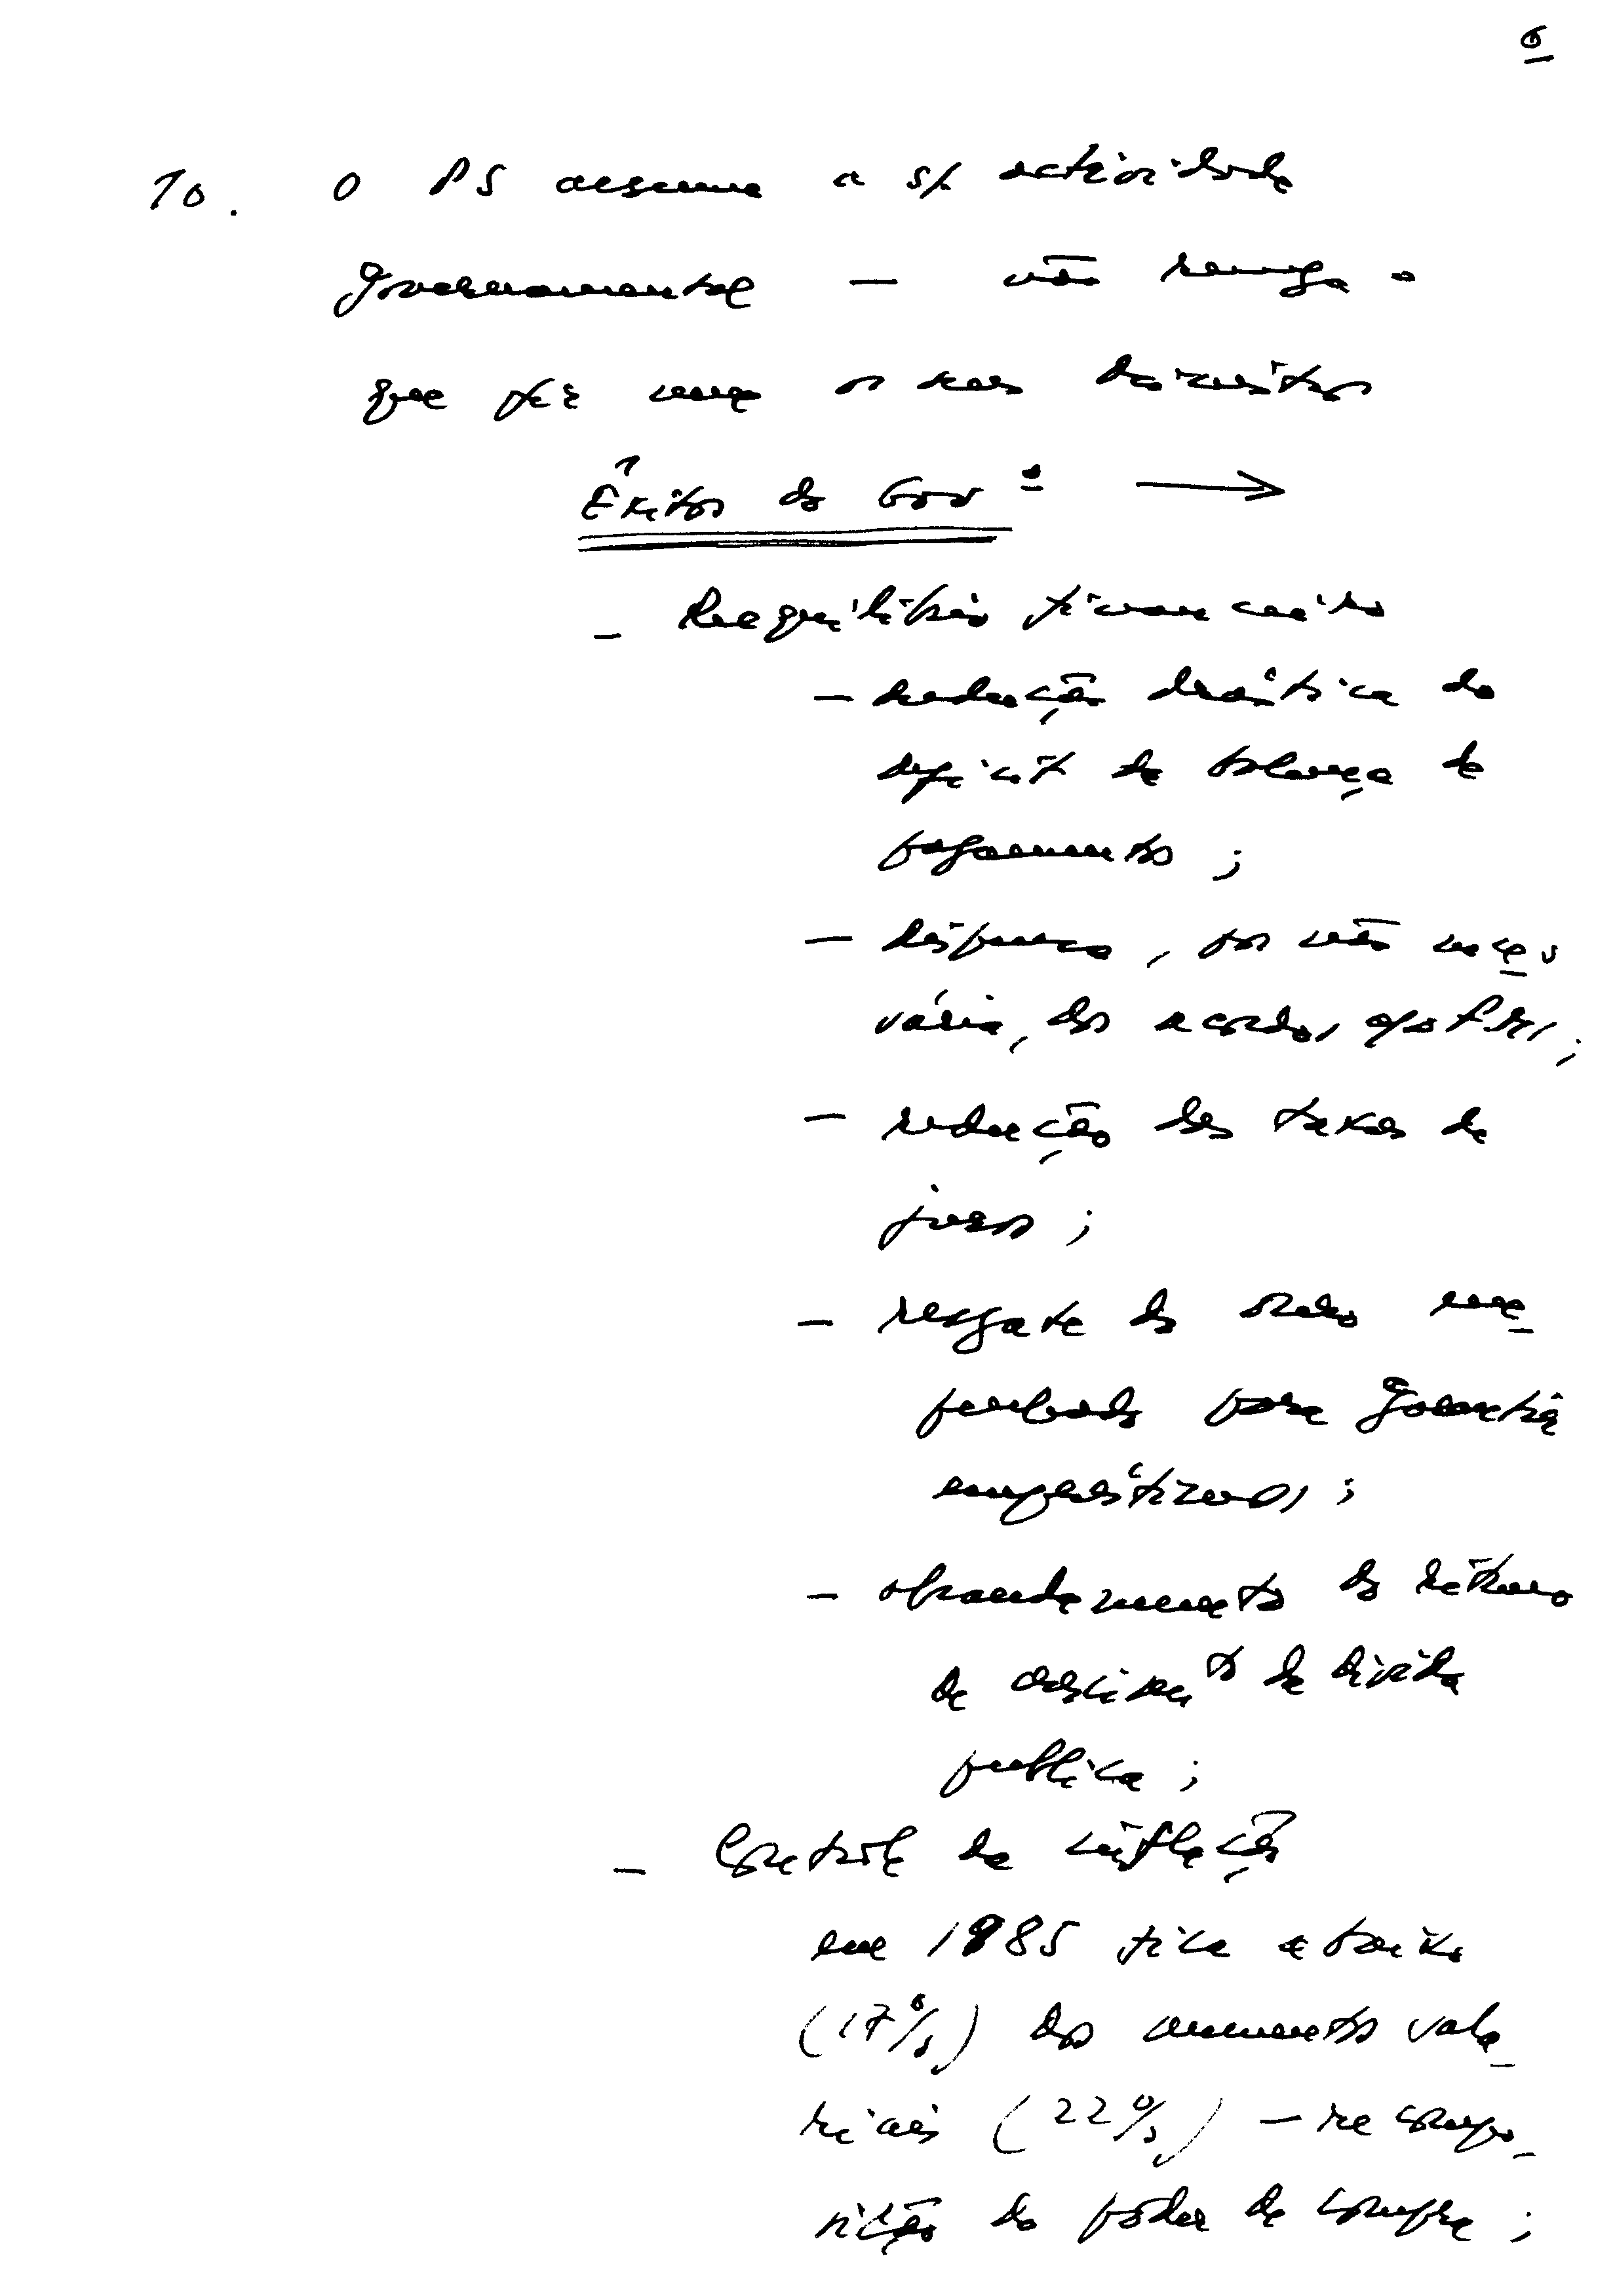 6
10. O PS assume a s/ actividade
governamental — não renega o
que fez nem os seus
Êxitos do Govº →
- Reequilíbrio financeiro
- redução drástica do
deficit da balança de
pagamentos;
- dispensa, por não neces
sária, dos acordos c/o FMI;
- redução das taxas de
juros;
- resgate do ouro em-
penhado para garantia
empréstimos;
- abrandamento do ritmo
de crescimto da dívida
publica;
- Controle da inflação
em 1985 fica abaixo
(17%) dos aumentos sala-
riais (22%) — recompo-
sição do poder de compra;